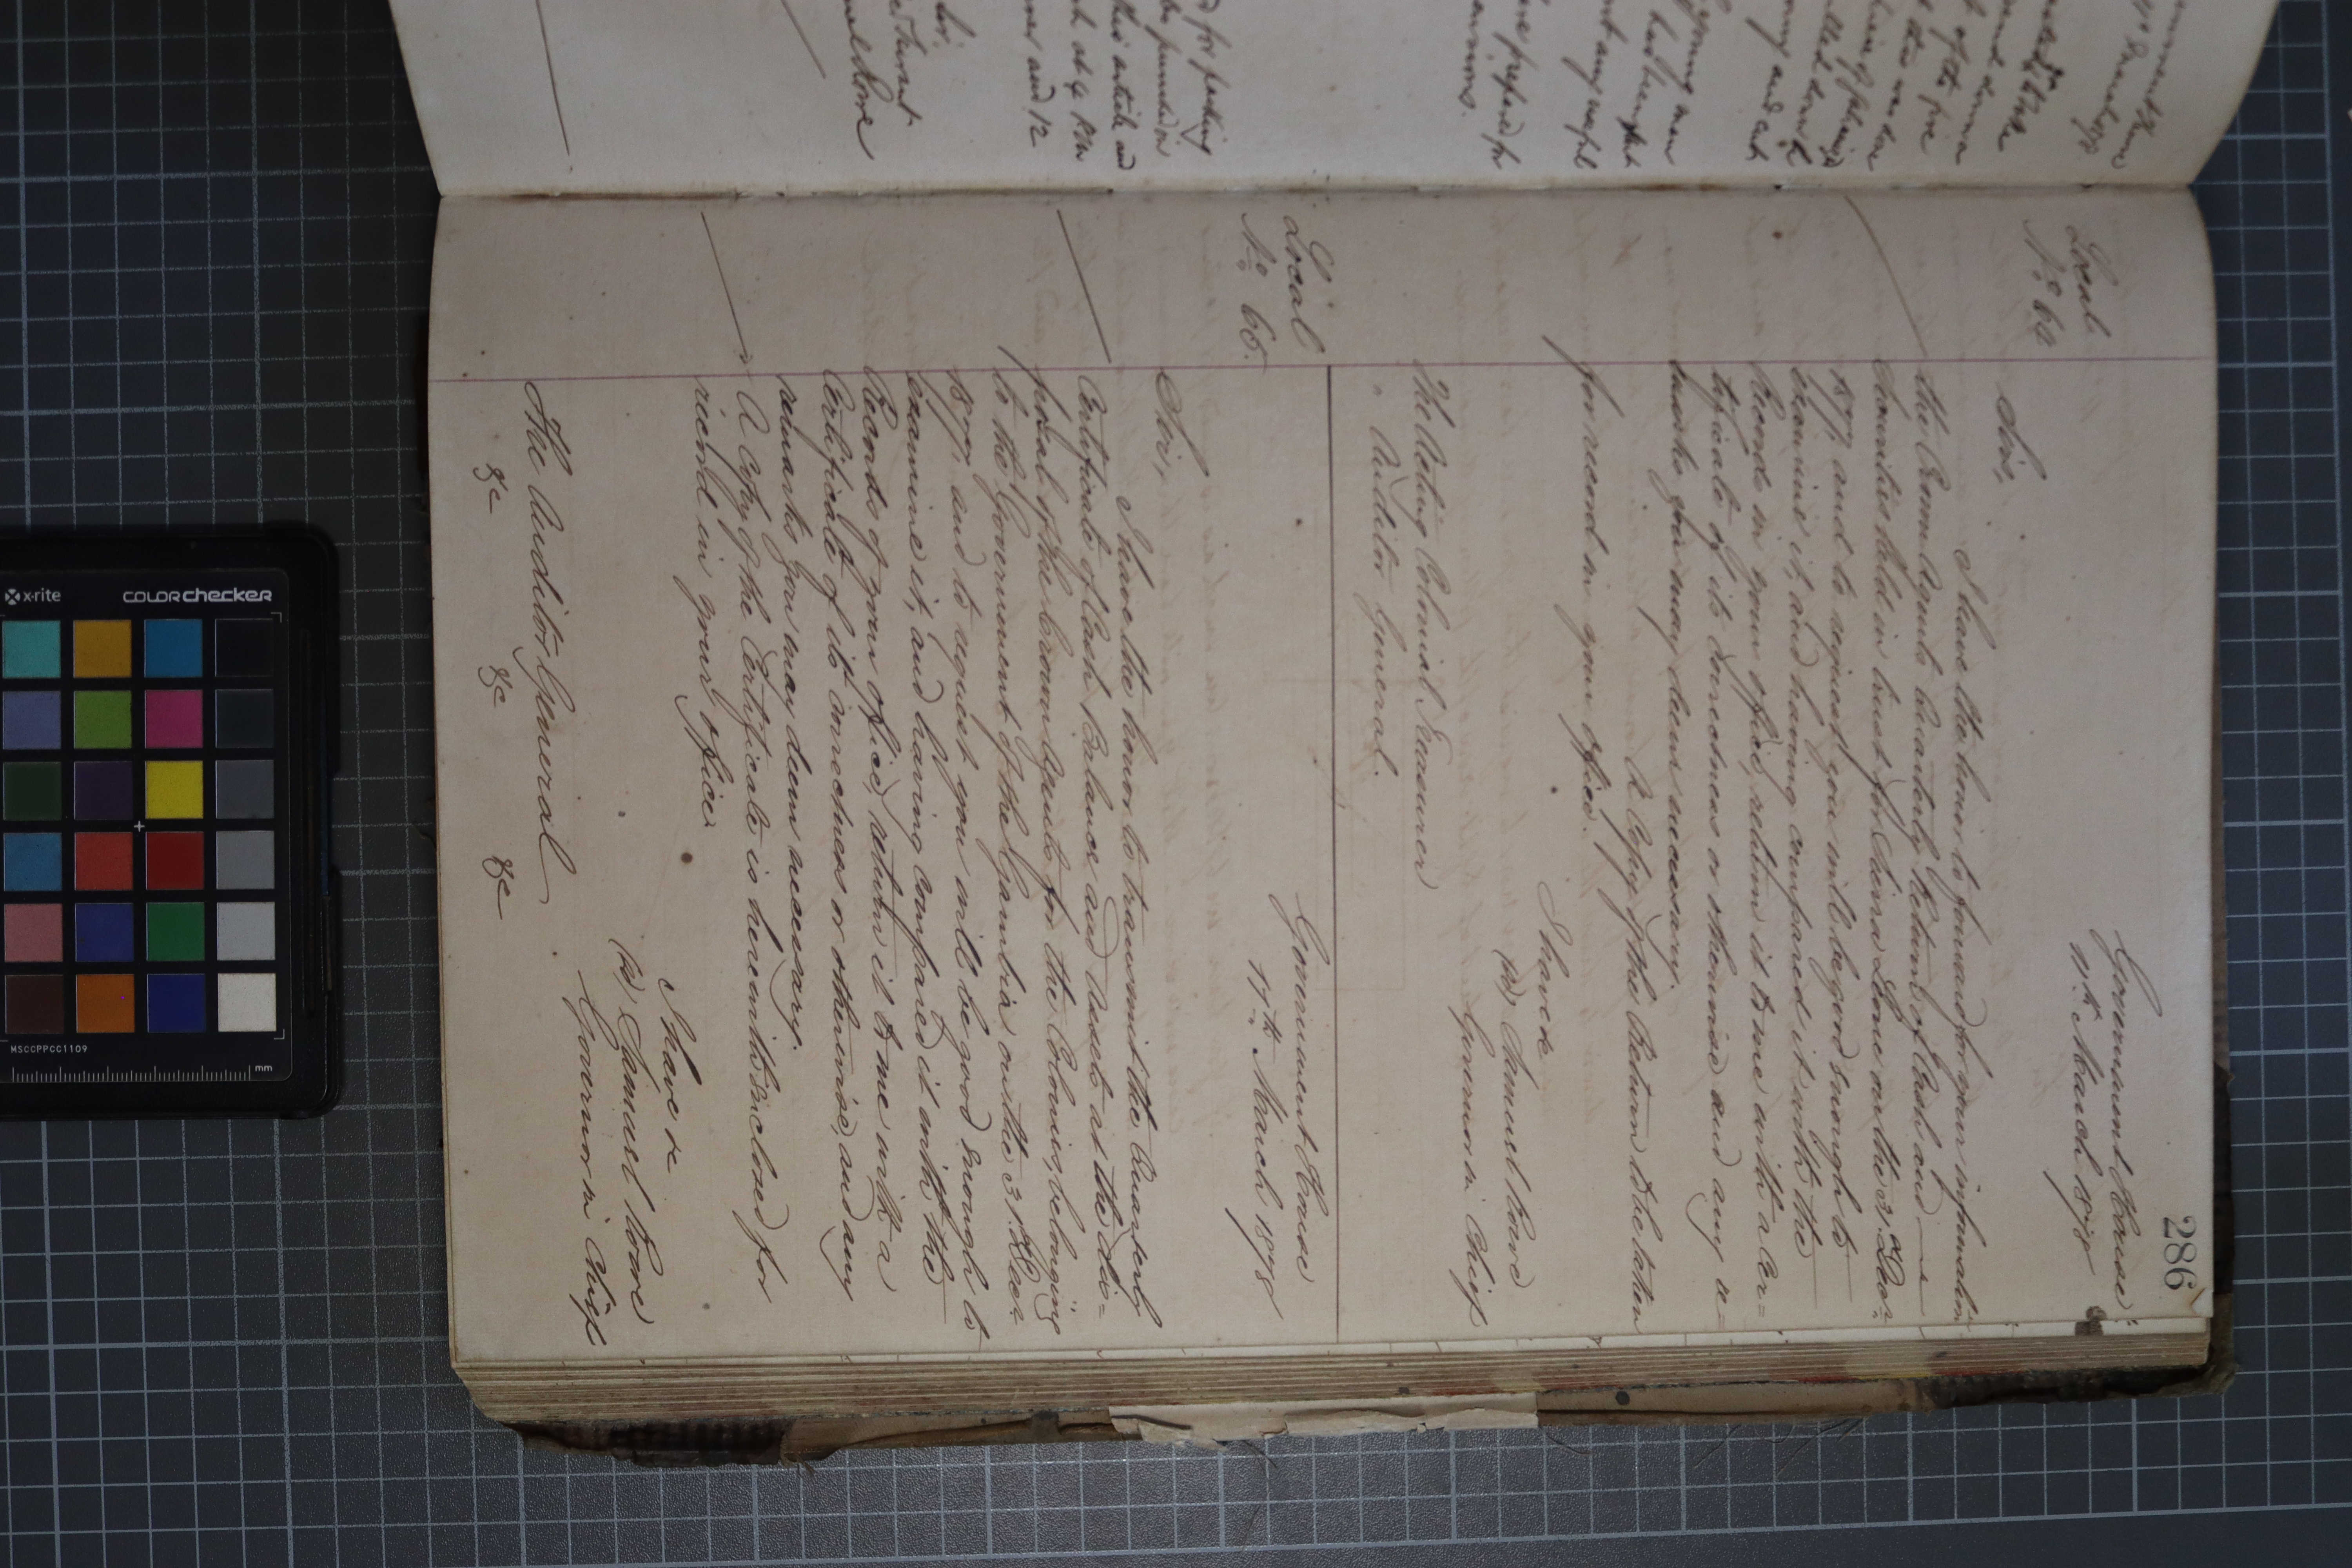 286
Local
No 64
Government House
11th March 1878
Sir,
I have the honor to forward for your information
the Crown Agents Quarterly Return of Cash and
Securities held in trust for Sierra Leone on the 31st Decr
1877, and to request you will be good enough to
examine it, and having compared it with the
Records in your office, return it to me with a Cer=
tificate of its correctness or otherwise and any re=
marks you may deem necessary.
A Copy of the Return to be taken
for record in your office.
I have &c
(sd) Samuel Rowe
Governor in Chief
The Acting Colonial Treasurer
" Auditor General.
Local
No 65.
Government House
19th March 1878
Sir,
I have the honor to transmit the Quarterly
Certificate of Cash Balance and Assets at the dis=
posal of the Crown Agents for the Colonies, belonging
to the Government of the Gambia on the 31st Decr
1877, and to request you will be good enough to
examine it, and having compared it with the
Records of your office, return it to me with a
Certificate of its correctness or otherwise, and any
remarks you may deem necessary.
A Copy of the Certificate is herewith enclosed for
record in your office.
I have &c
(sd) Samuel Rowe
Governor in Chief
The Auditor General
&c &c &c
for packing
this article and
and 12
prepared for
x-rite
colorchecker
MSCCPPCC1109
mm